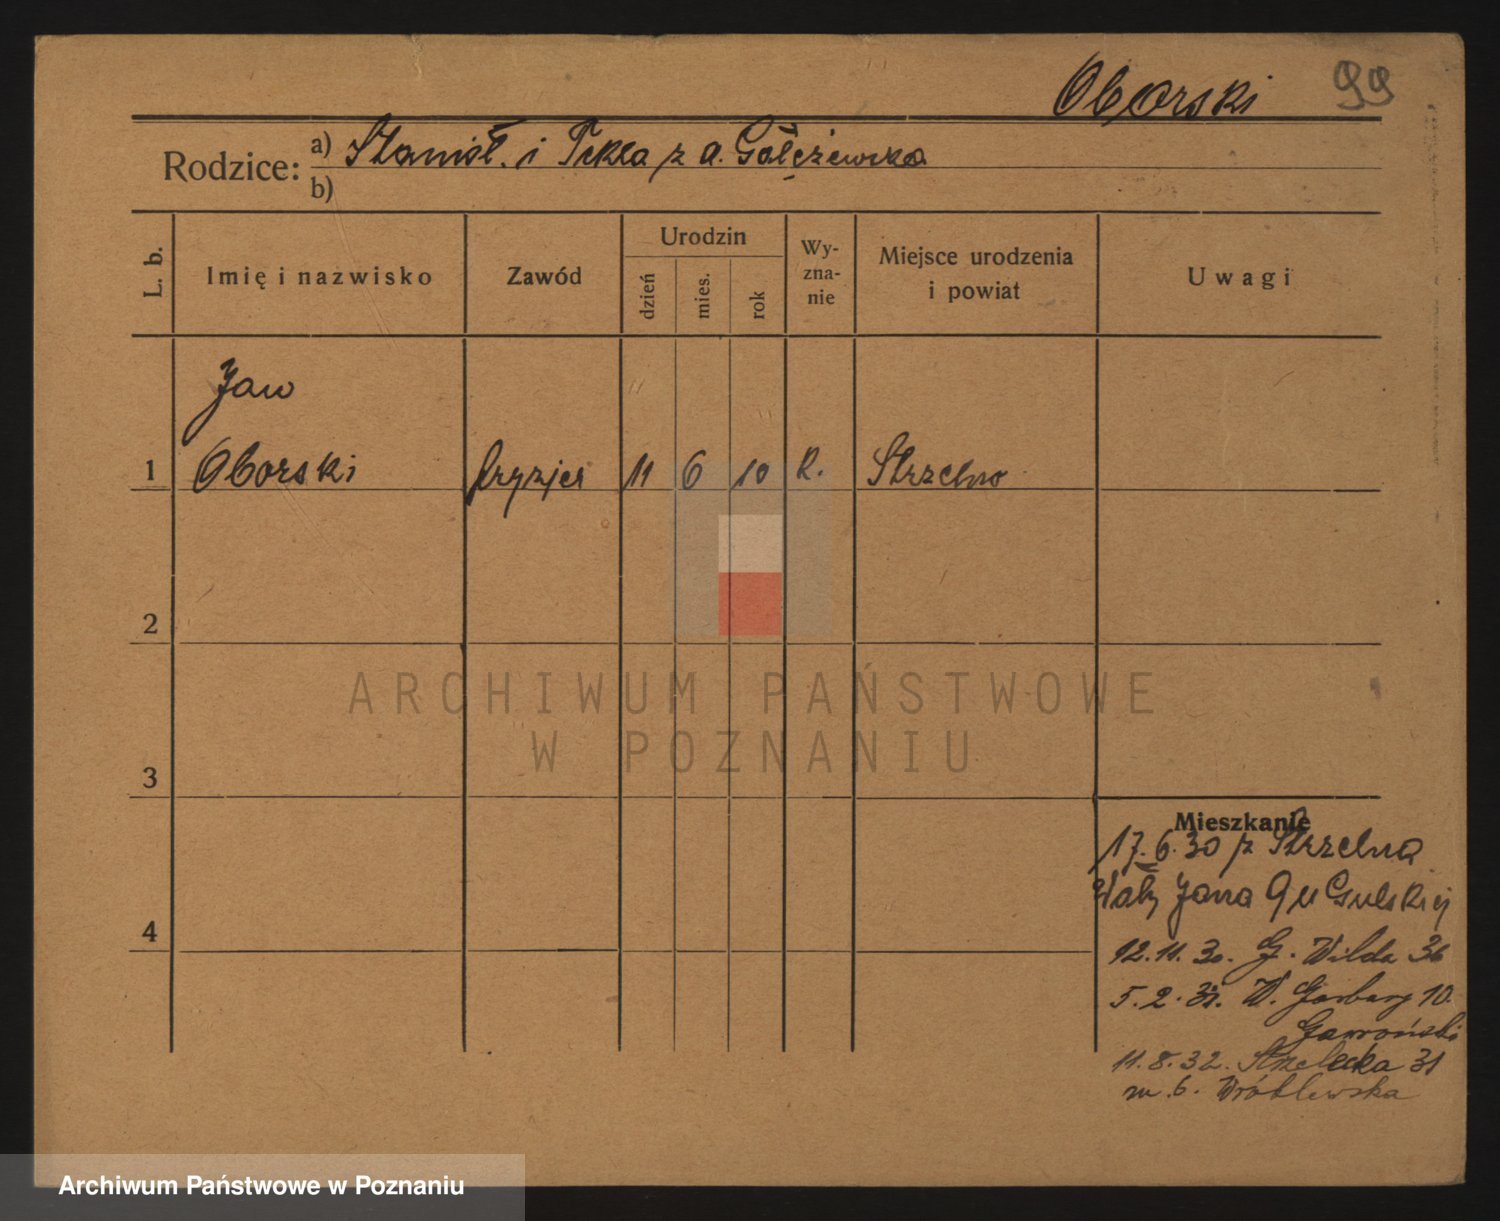 Oborski 99
Rodzice: a) Stanisł. i Tekla z d. Gołczewska
b)
L. b.
Imię i nazwisko
Zawód
Urodzin
dzień
mies.
rok
Wy-
zna-
nie
Miejsce urodzenia
i powiat
Uwagi
Jan
1 Oborski fryzjer 11 6 10 k. Strzelno
2
3
4
Mieszkanie
17.6.30 z Strzelna
Wały Jana 9 u Gulskiej
12.11.30. G. Wilda 36
5.2.31. W. Garbary 10.
Gawroński
11.8.32. Strzelecka 31
m. 6. Wróblewska
ARCHIWUM PAŃSTWOWE
W POZNANIU
Archiwum Państwowe w Poznaniu